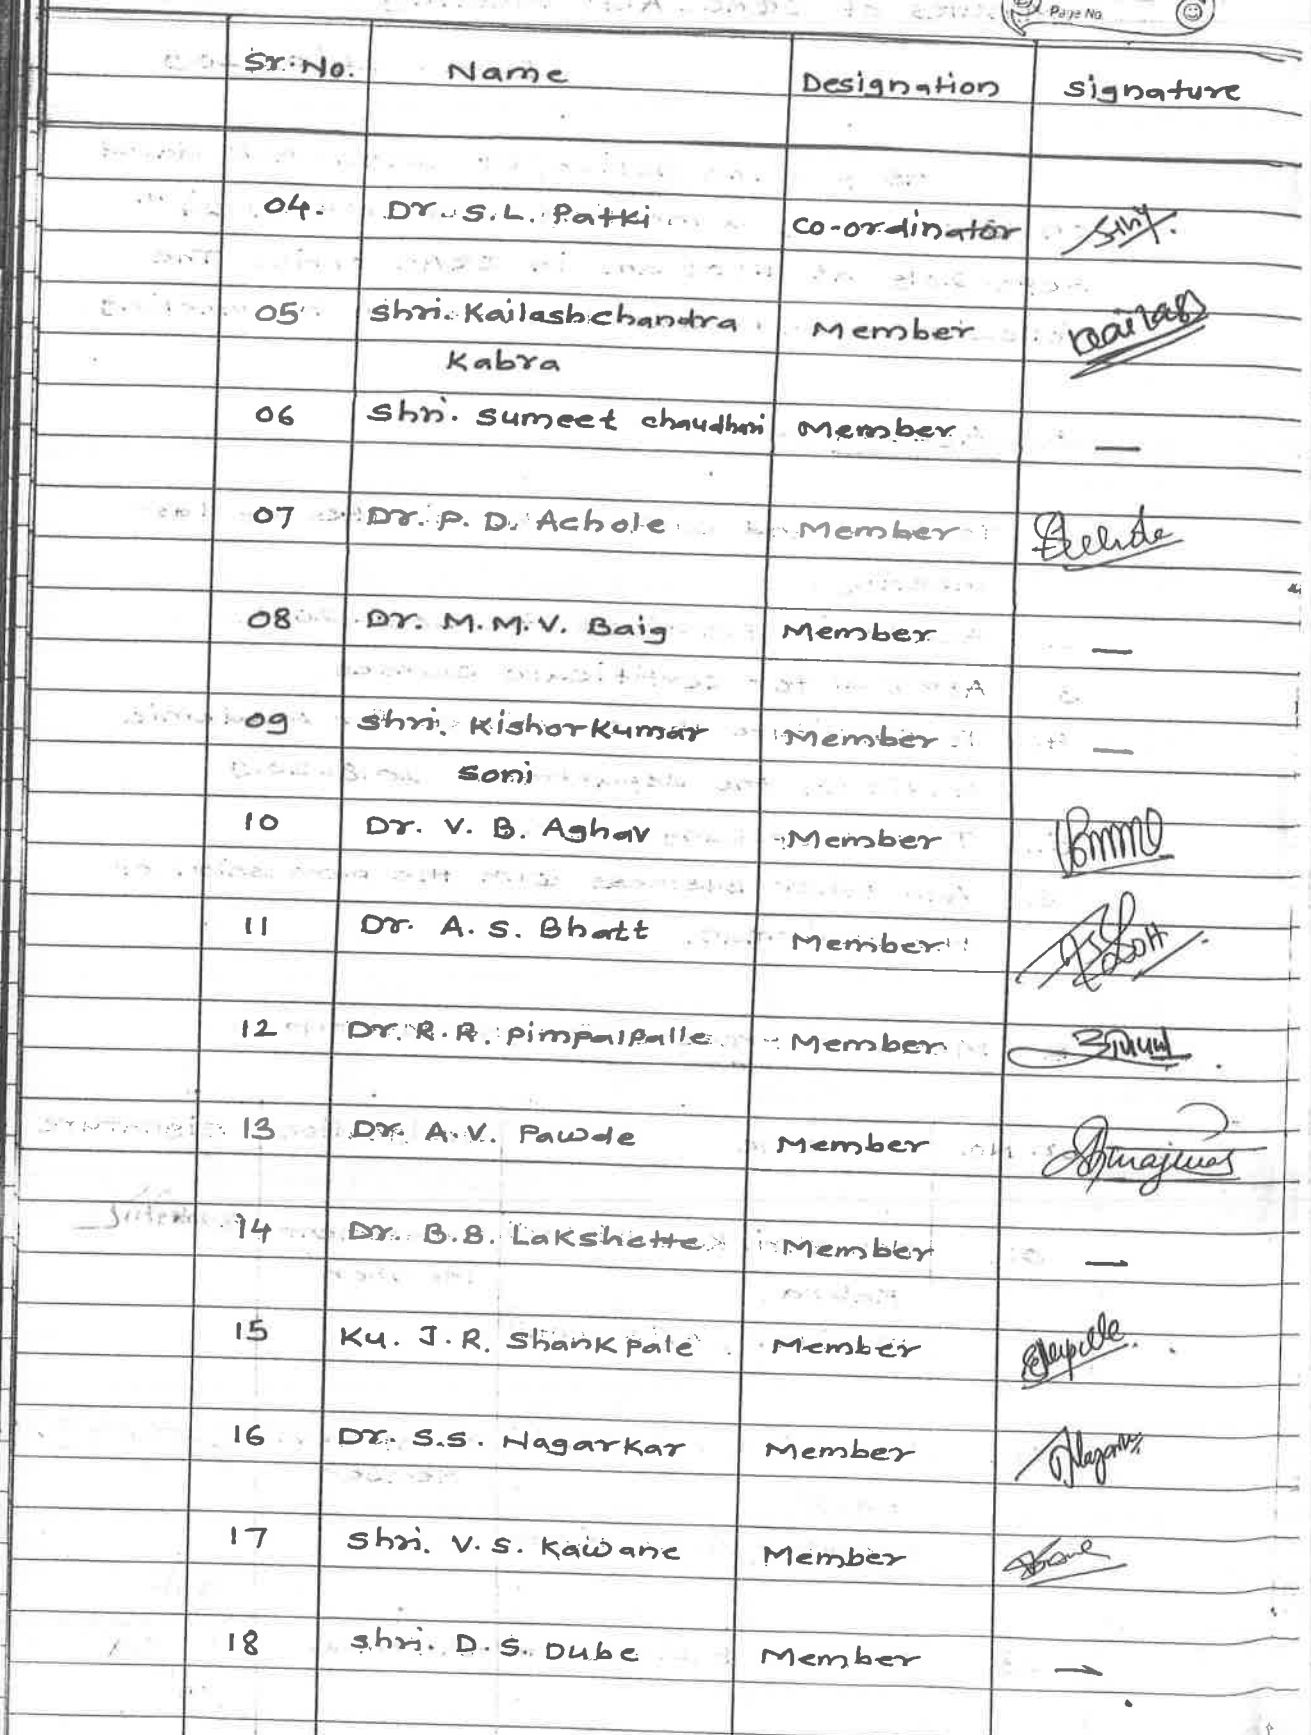 Page No.
Sr. No. Name Designation Signature
04. Dr. S.L. Patki Co-ordinator
05 Shri. Kailashchandra Member
Kabra
06 Shri. Sumeet chaudhari Member —
07 Dr. P. D. Achole Member
08 Dr. M.M.V. Baig Member —
09 Shri. Kishorkumar Member —
Soni
10 Dr. V. B. Aghav Member
11 Dr. A. S. Bhatt Member
12 Dr. R.R. Pimpalpalle Member
13 Dr. A.V. Pawde Member
14 Dr. B.B. Lakshette Member —
15 Ku. J.R. Shankpale Member
16 Dr. S.S. Nagarkar Member
17 Shri. V.S. Kawane Member
18 Shri. D.S. Dube Member —